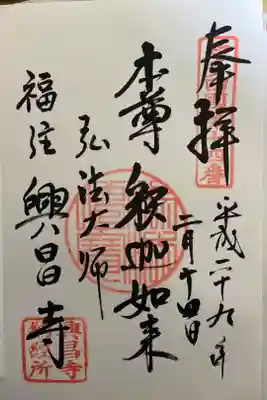 奉拝
平成二十九年
二月十四日
本尊 釈迦如来
弘法大师
福住 興昌寺
興昌寺
納経所